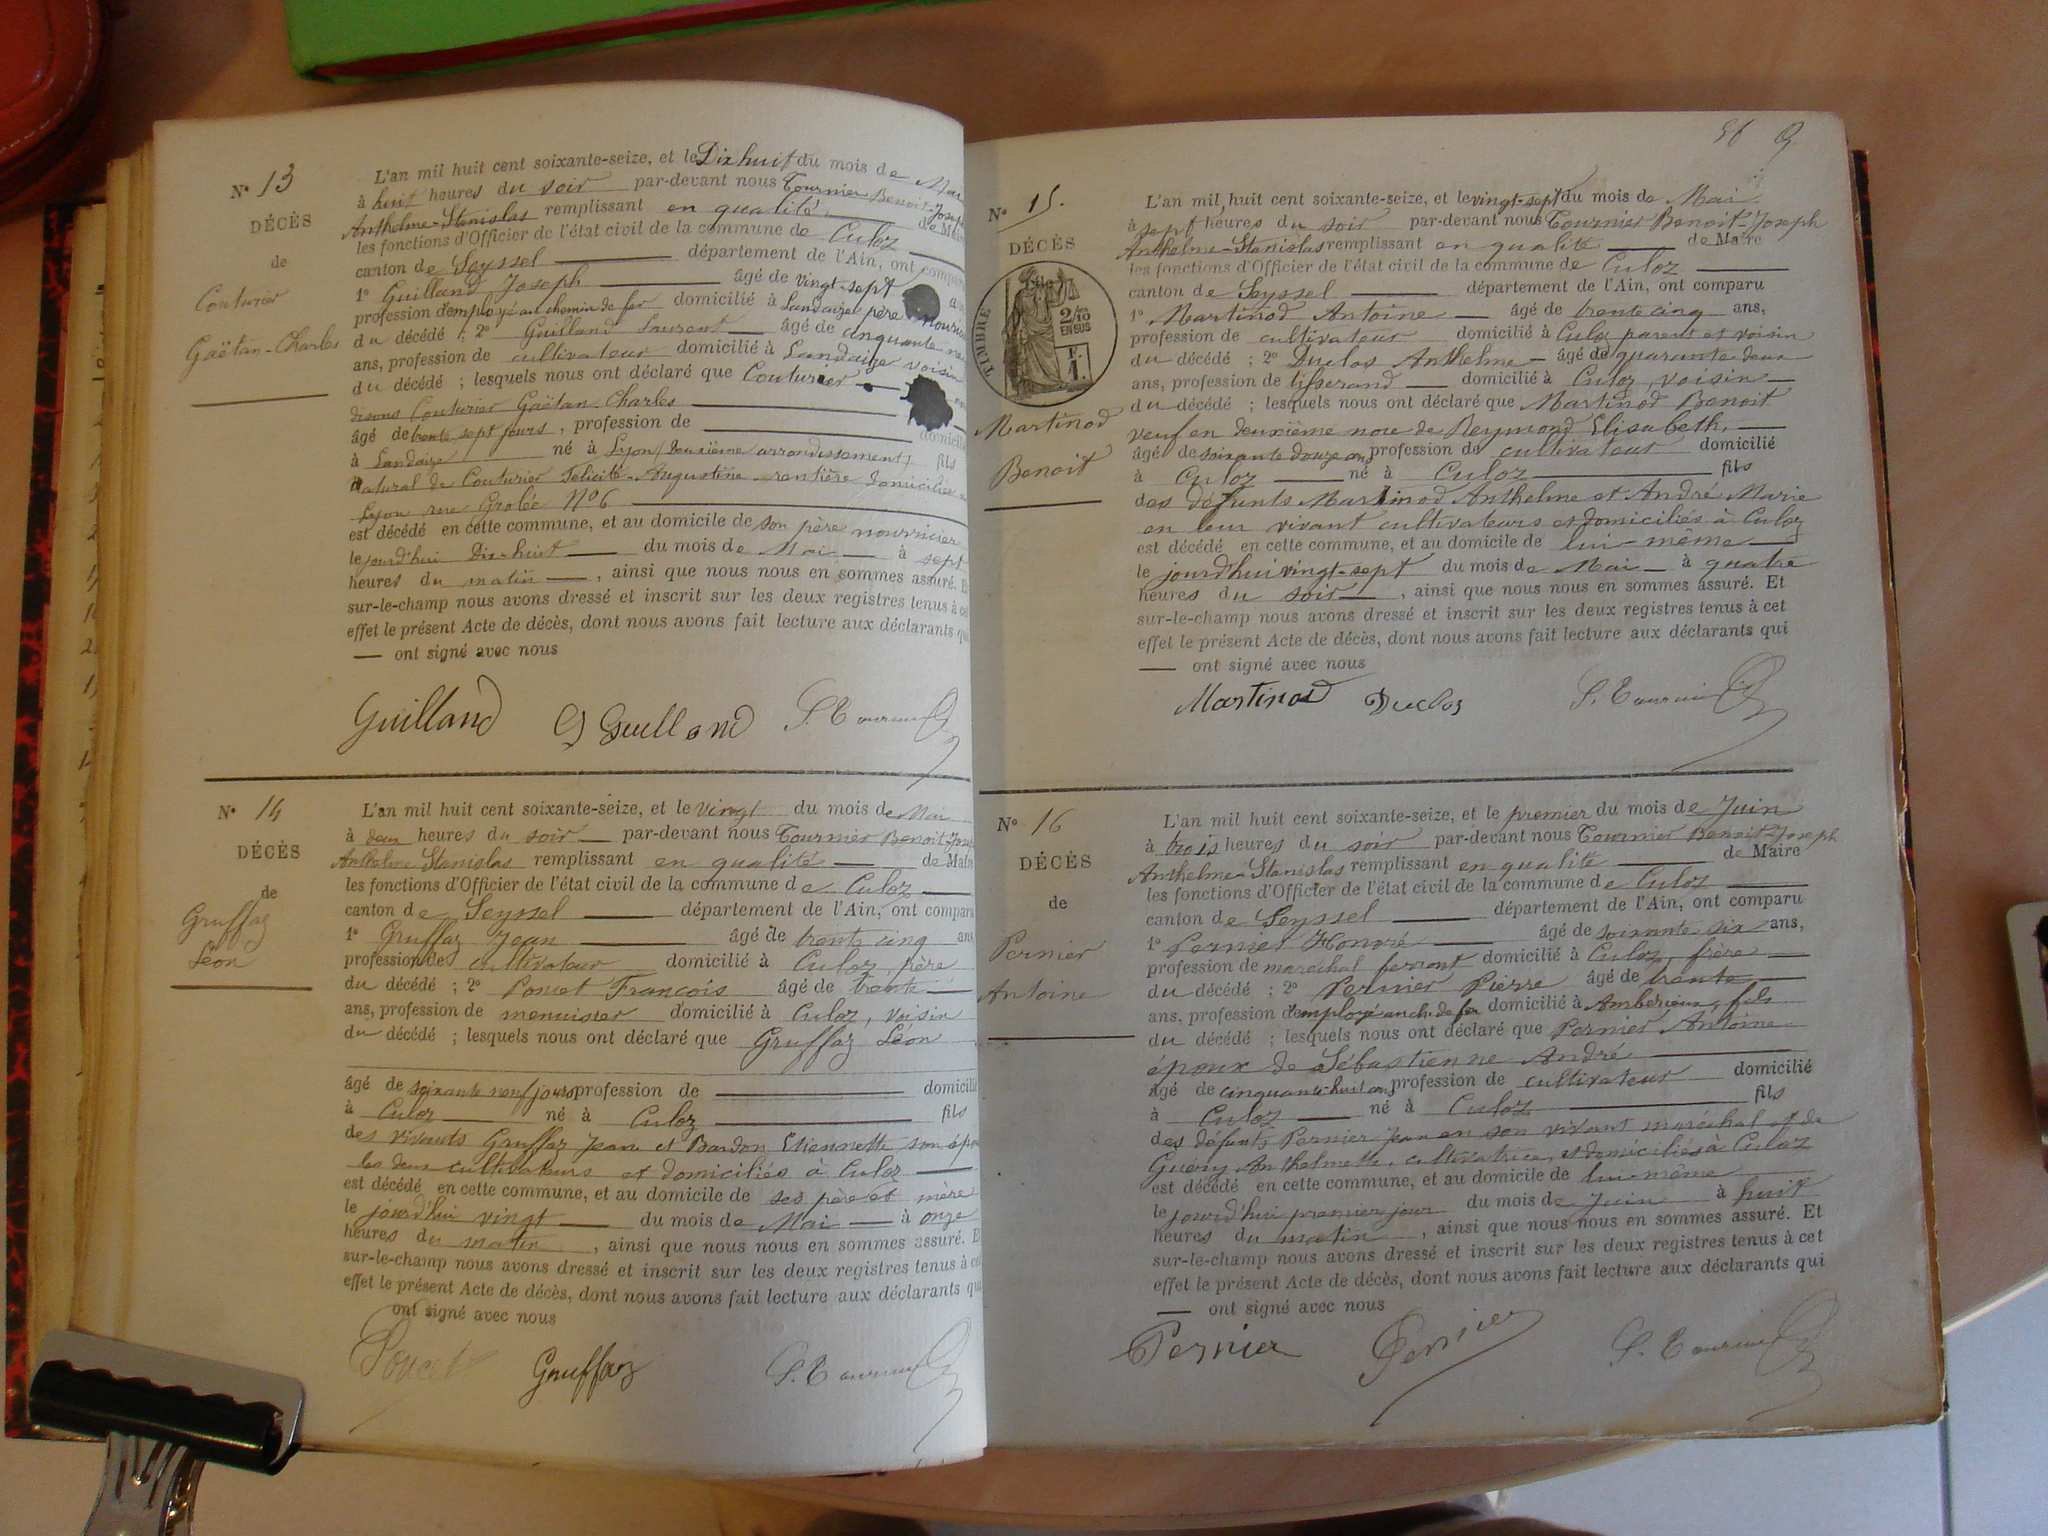 N° 13
DÉCÈS
de
Couturier
Gaëtan-Charles
L'an mil huit cent soixante-seize, et le Dix huit du mois de Mai
à huit heures du soir par-devant nous Tournier Benoit-Joseph
Anthelme-Stanislas remplissant en qualité de Maire
les fonctions d'Officier de l'état civil de la commune de Culoz
canton de Seyssel département de l'Ain, ont comparu
1° Guilland Joseph âgé de vingt-sept
profession d'employé au chemin de fer domicilié à Landaize père nourricier
du décédé ; 2° Guilland Laurent âgé de cinquante
ans, profession de cultivateur domicilié à Landaize voisin
du décédé ; lesquels nous ont déclaré que Couturier
disons Couturier Gaëtan-Charles
âgé de trente sept jours, profession de domicilié
à Landaize né à Lyon (Deuxième arrondissement) fils
natural de Couturier Félicité-Augustine rentière domiciliée
Lyon rue Grolée N° 6
est décédé en cette commune, et au domicile de son père nourricier
le jourd'hui Dix-huit du mois de Mai à sept
heures du matin, ainsi que nous nous en sommes assuré. Et
sur-le-champ nous avons dressé et inscrit sur les deux registres tenus à cet
effet le présent Acte de décès, dont nous avons fait lecture aux déclarants qui
ont signé avec nous
Guilland G Guilland S. Tournier
N° 14
DÉCÈS
de
Gruffaz
Léon
L'an mil huit cent soixante-seize, et le vingt du mois de Mai
à deux heures du soir par-devant nous Tournier Benoit-Joseph
Anthelme Stanislas remplissant en qualité de Maire
les fonctions d'Officier de l'état civil de la commune de Culoz
canton de Seyssel département de l'Ain, ont comparu
1° Gruffaz Jean âgé de trente cinq ans,
profession de cultivateur domicilié à Culoz, père
du décédé ; 2° Poncet François âgé de trente
ans, profession de menuisier domicilié à Culoz, voisin
du décédé ; lesquels nous ont déclaré que Gruffaz Léon
âgé de soixante neuf jours profession de domicilié
à Culoz né à Culoz fils
des vivants Gruffaz Jean et Bardon Etiennette son
les deux cultivateurs et domiciliés à Culoz
est décédé en cette commune, et au domicile de ses père et mère
le jourd'hui vingt du mois de Mai à onze
heures du matin, ainsi que nous nous en sommes assuré. Et
sur-le-champ nous avons dressé et inscrit sur les deux registres tenus à cet
effet le présent Acte de décès, dont nous avons fait lecture aux déclarants qui
ont signé avec nous
Poncet Gruffaz S. Tournier
N° 15.
DÉCÈS
TIMBRE
2/10
EN SUS
Martinod
Benoit
L'an mil huit cent soixante-seize, et le vingt-sept du mois de Mai
à sept heures du soir par-devant nous Tournier Benoit-Joseph
Anthelme-Stanislas remplissant en qualité de Maire
les fonctions d'Officier de l'état civil de la commune de Culoz
canton de Seyssel département de l'Ain, ont comparu
1° Martinod Antoine âgé de trente cinq ans,
profession de cultivateur domicilié à Culoz parent et voisin
du décédé ; 2° Duclos Anthelme âgé de quarante deux
ans, profession de tisserand domicilié à Culoz, voisin
du décédé ; lesquels nous ont déclaré que Martinod Benoit
veuf en deuxième noce de Reymond Elisabeth,
âgé de soixante douze ans profession de cultivateur domicilié
à Culoz né à Culoz fils
des défunts Martinod Anthelme et André Marie
en leur vivant cultivateurs et domiciliés à Culoz
est décédé en cette commune, et au domicile de lui-même
le jourd'hui vingt-sept du mois de Mai à quatre
heures du soir, ainsi que nous nous en sommes assuré. Et
sur-le-champ nous avons dressé et inscrit sur les deux registres tenus à cet
effet le présent Acte de décès, dont nous avons fait lecture aux déclarants qui
ont signé avec nous
Martinod Duclos S. Tournier
N° 16
DÉCÈS
de
Pernier
Antoine
L'an mil huit cent soixante-seize, et le premier du mois de Juin
à trois heures du soir par-devant nous Tournier Benoit-Joseph
Anthelme-Stanislas remplissant en qualité de Maire
les fonctions d'Officier de l'état civil de la commune de Culoz
canton de Seyssel département de l'Ain, ont comparu
1° Pernier Honoré âgé de soixante-six ans,
profession de maréchal ferrant domicilié à Culoz, frère
du décédé ; 2° Pernier Pierre âgé de trente
ans, profession d'employé au ch. de fer domicilié à Ambérieux, fils
du décédé ; lesquels nous ont déclaré que Pernier Antoine
époux de Sébastienne André
âgé de cinquante-huit ans profession de cultivateur domicilié
à Culoz né à Culoz fils
des défunts Pernier Jean en son vivant maréchal et de
Guény Anthelmette, cultivatrice, et domiciliés à Culoz
est décédé en cette commune, et au domicile de lui-même
le jourd'hui premier jour du mois de Juin à huit
heures du matin, ainsi que nous nous en sommes assuré. Et
sur-le-champ nous avons dressé et inscrit sur les deux registres tenus à cet
effet le présent Acte de décès, dont nous avons fait lecture aux déclarants qui
ont signé avec nous
Pernier Pernier S. Tournier